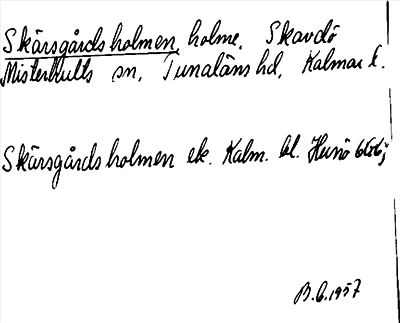 Skärsgårdsholmen, holme, Skavdö
Misterhults sn, Tunaläns hd, Kalmar l.
Skärsgårdsholmen ek. Kalm. bl. Hunö
B.G.1957